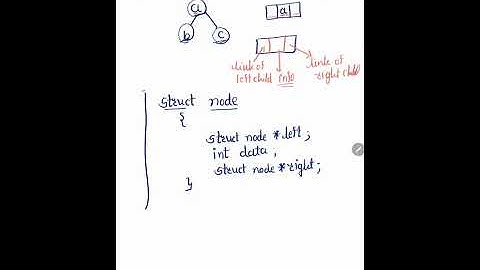 a
b c
a
link of left child
info
link of right child
struct node
{
struct node *left;
int data;
struct node *right;
}